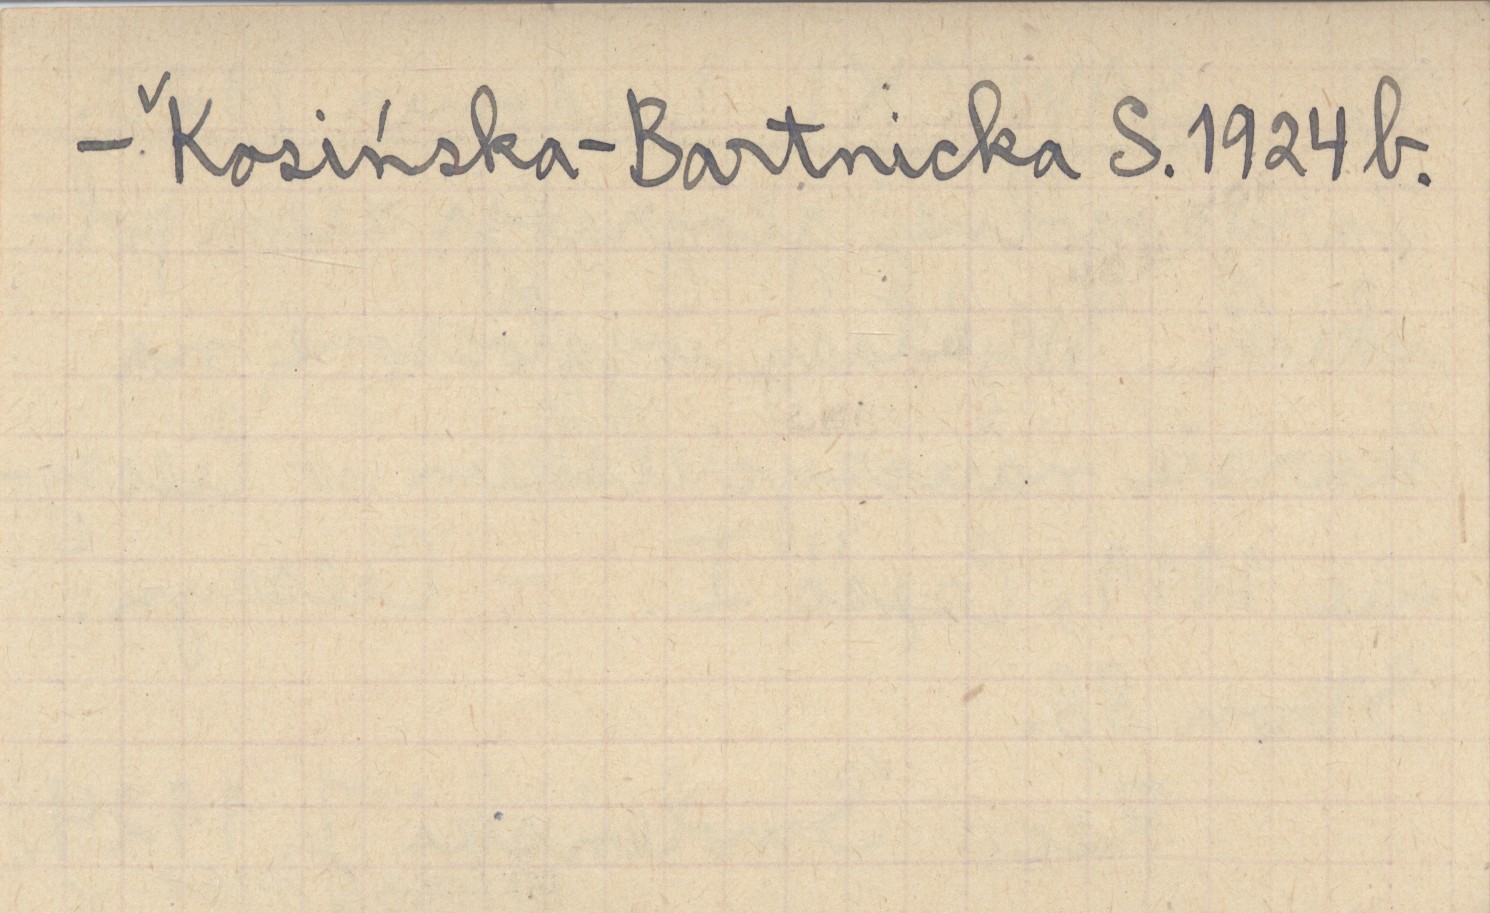 – ˇKosińska-Bartnicka S. 1924 b.